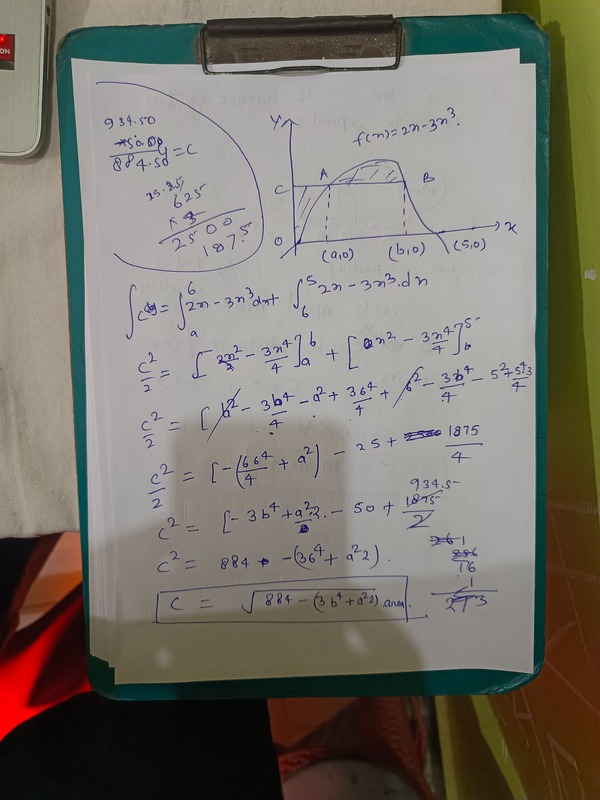 934.50
884.50 = C
625
× 3
2500
187.5
Y
f(x) = 2x - 3x³.
C
A
B
O
(a,0)
(b,0)
(5,0)
X
= ∫ₐ⁶ 2x - 3x³ dx + ∫₆⁵ 2x - 3x³. dx
c²/2 = [2x²/2 - 3x⁴/4]ₐᵇ + [x² - 3x⁴/4]_b⁵
c²/2 = [b² - 3b⁴/4 - a² + 3b⁴/4 + b² - 3b⁴/4 - 5² + 5⁴3/4
c²/2 = [-(6b⁴/4 + a²) - 25 + 1875/4
c² = [-3b⁴ + a²2. - 50 + 1875/2
934.5
c² = 884 - (3b⁴ + a²2).
C = √884 - (3b⁴ + a²2) area.
16
1